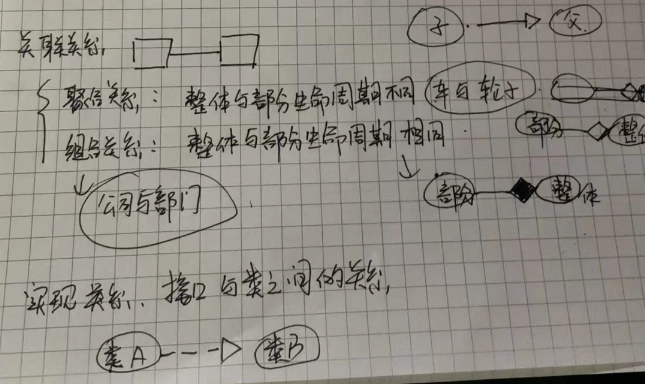 子 父
关联关系
聚合关系：整体与部分生命周期不同 车与轮子
部分 整体
组合关系：整体与部分生命周期相同
公司与部门
部分 整体
实现关系. 接口与类之间的关系,
类A 类B